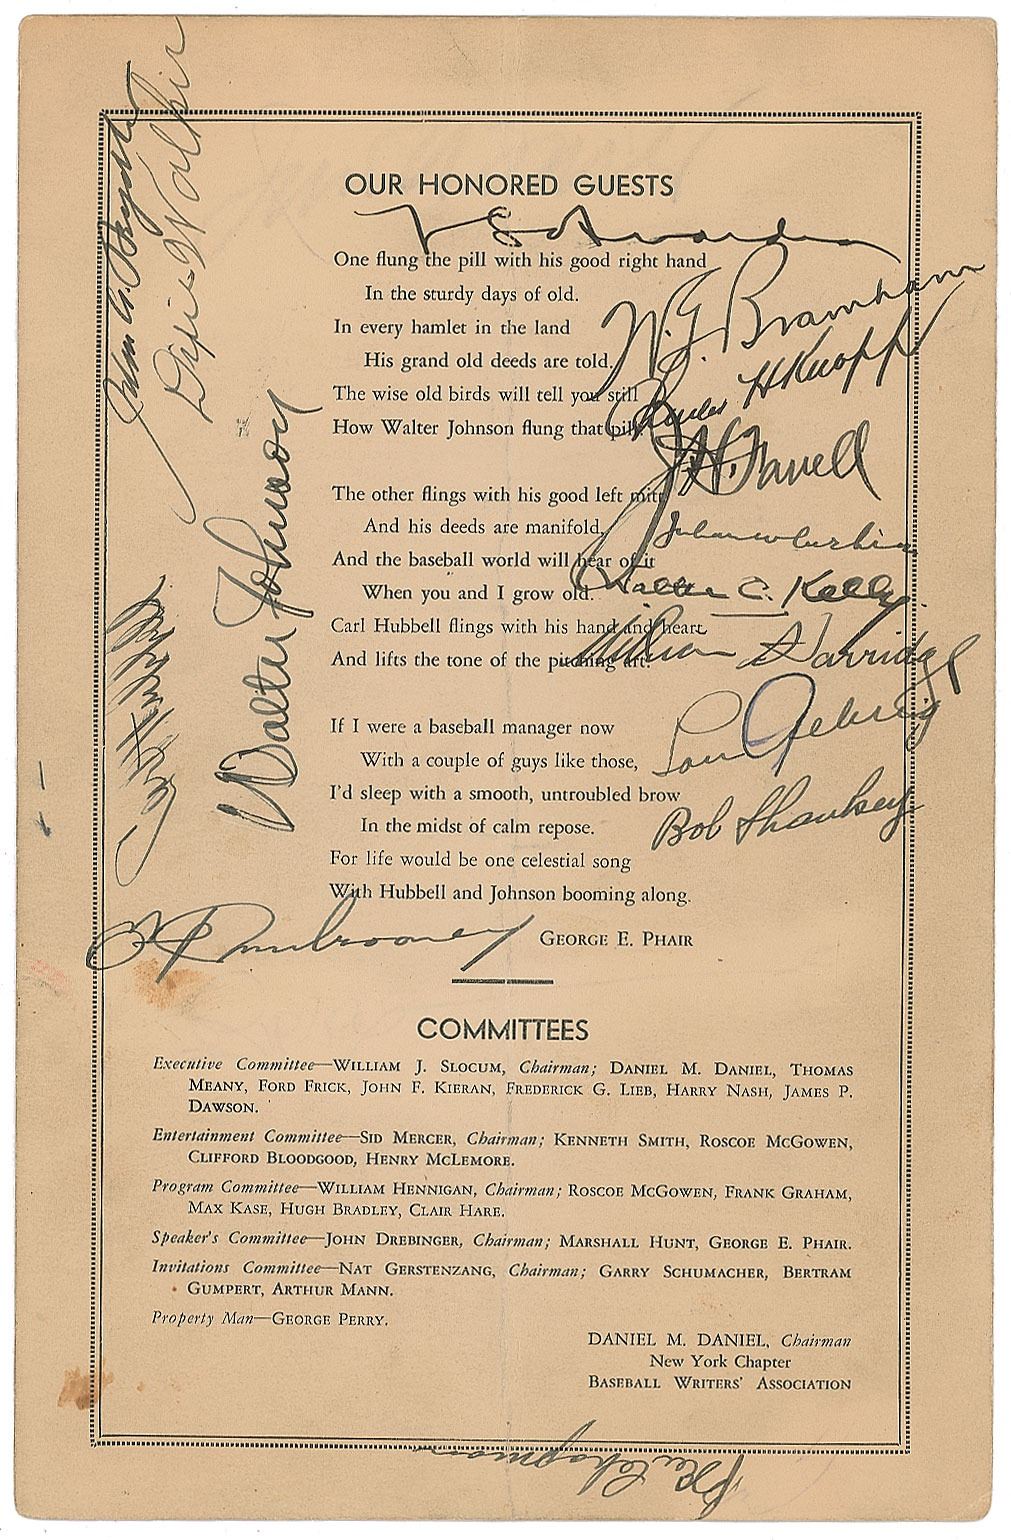 OUR HONORED GUESTS
One flung the pill with his good right hand
In the sturdy days of old.
In every hamlet in the land
His grand old deeds are told.
The wise old birds will tell you still
How Walter Johnson flung that pill.
The other flings with his good left mitt
And his deeds are manifold,
And the baseball world will hear of it
When you and I grow old.
Carl Hubbell flings with his hand and heart
And lifts the tone of the pitching art.
If I were a baseball manager now
With a couple of guys like those,
I'd sleep with a smooth, untroubled brow
In the midst of calm repose.
For life would be one celestial song
With Hubbell and Johnson booming along.
GEORGE E. PHAIR
Dixie Walker
Walter Johnson
W. G. Bramham
Charles H Knapp
J. H. Farrell
Walter C. Kelly
William Harridge
Lou Gehrig
Bob Shawkey
COMMITTEES
Executive Committee—WILLIAM J. SLOCUM, Chairman; DANIEL M. DANIEL, THOMAS
MEANY, FORD FRICK, JOHN F. KIERAN, FREDERICK G. LIEB, HARRY NASH, JAMES P.
DAWSON.
Entertainment Committee—SID MERCER, Chairman; KENNETH SMITH, ROSCOE MCGOWEN,
CLIFFORD BLOODGOOD, HENRY MCLEMORE.
Program Committee—WILLIAM HENNIGAN, Chairman; ROSCOE MCGOWEN, FRANK GRAHAM,
MAX KASE, HUGH BRADLEY, CLAIR HARE.
Speaker's Committee—JOHN DREBINGER, Chairman; MARSHALL HUNT, GEORGE E. PHAIR.
Invitations Committee—NAT GERSTENZANG, Chairman; GARRY SCHUMACHER, BERTRAM
GUMPERT, ARTHUR MANN.
Property Man—GEORGE PERRY.
DANIEL M. DANIEL, Chairman
New York Chapter
BASEBALL WRITERS' ASSOCIATION
Ben Chapman